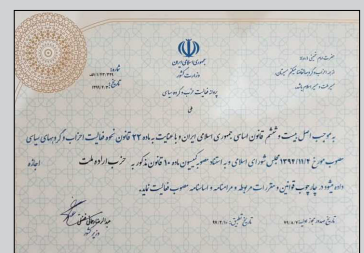 جمهوری اسلامی ایران
وزارت کشور
پروانه فعالیت حزب گروه سیاسی
شماره:
تاریخ:
به موجب اصل بیست و ششم قانون اساسی جمهوری اسلامی ایران و با عنایت به ماده ۲۲ قانون نحوه فعالیت احزاب و گروه‌های سیاسی
مصوب مورخ ۱۳۹۴/۱۱/۴ مجلس شورای اسلامی و به استناد مصوبه کمیسیون ماده ۱۰ قانون مذکور به حزب اراده ملت اجازه
داده می‌شود در چارچوب قوانین و مقررات مربوطه و مرامنامه و اساسنامه مصوب فعالیت نماید.
تاریخ صدور مجوز اولیه:
تاریخ تطبیق:
وزیر کشور